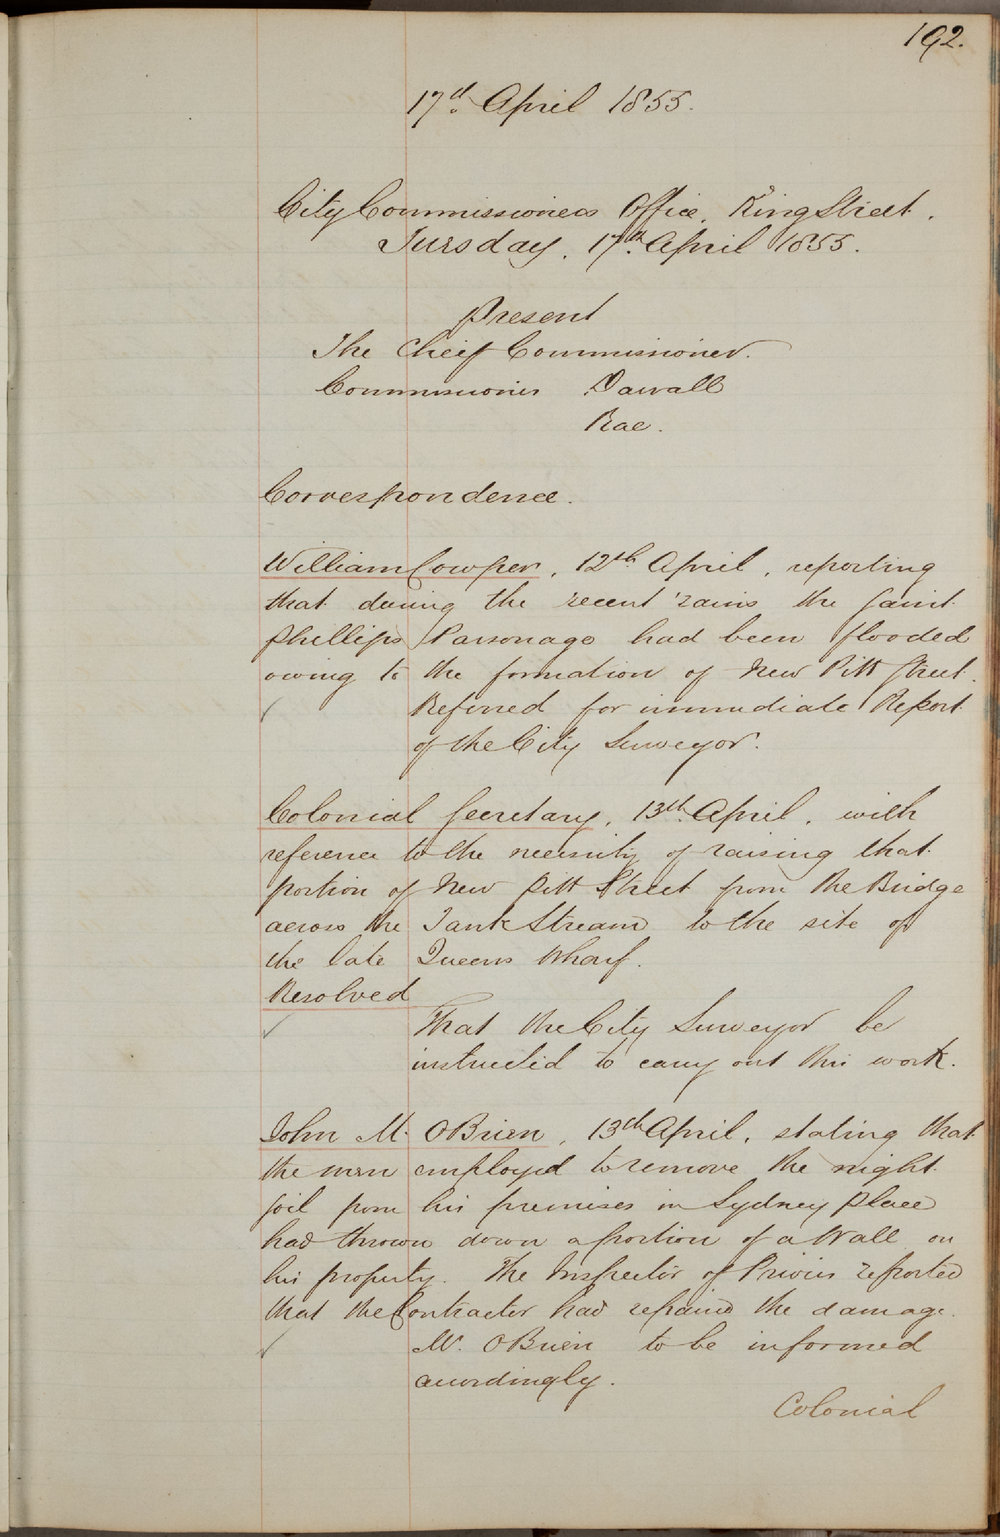 192.
17th April 1855.
City Commissioners Office, King Street.
Tuesday, 17th April 1855.
Present
The Cheif Commissioner.
Commissioner Darvall
Rae.
Correspondence.
William Cowper, 12th April, reporting
that during the recent rains the Saint
Phillips Parsonage had been flooded
owing to the formation of New Pitt Street.
✓ Referred for immediate Report
of the City Surveyor.
Colonial Secretary, 13th April, with
reference to the necessity of raising that
portion of New Pitt Street from the Bridge
across the Tank Stream to the site of
the late Queens Wharf.
Resolved
✓ That the City Surveyor be
instructed to carry out this work.
John M. OBrien, 13th April, stating that
the men employed to remove the night
soil from his premises in Sydney place
had thrown down a portion of a Wall on
his property. The Inspector of Privies reported
that the Contractor had repaired the damage.
✓ Mr. OBrien to be informed
accordingly.
Colonial